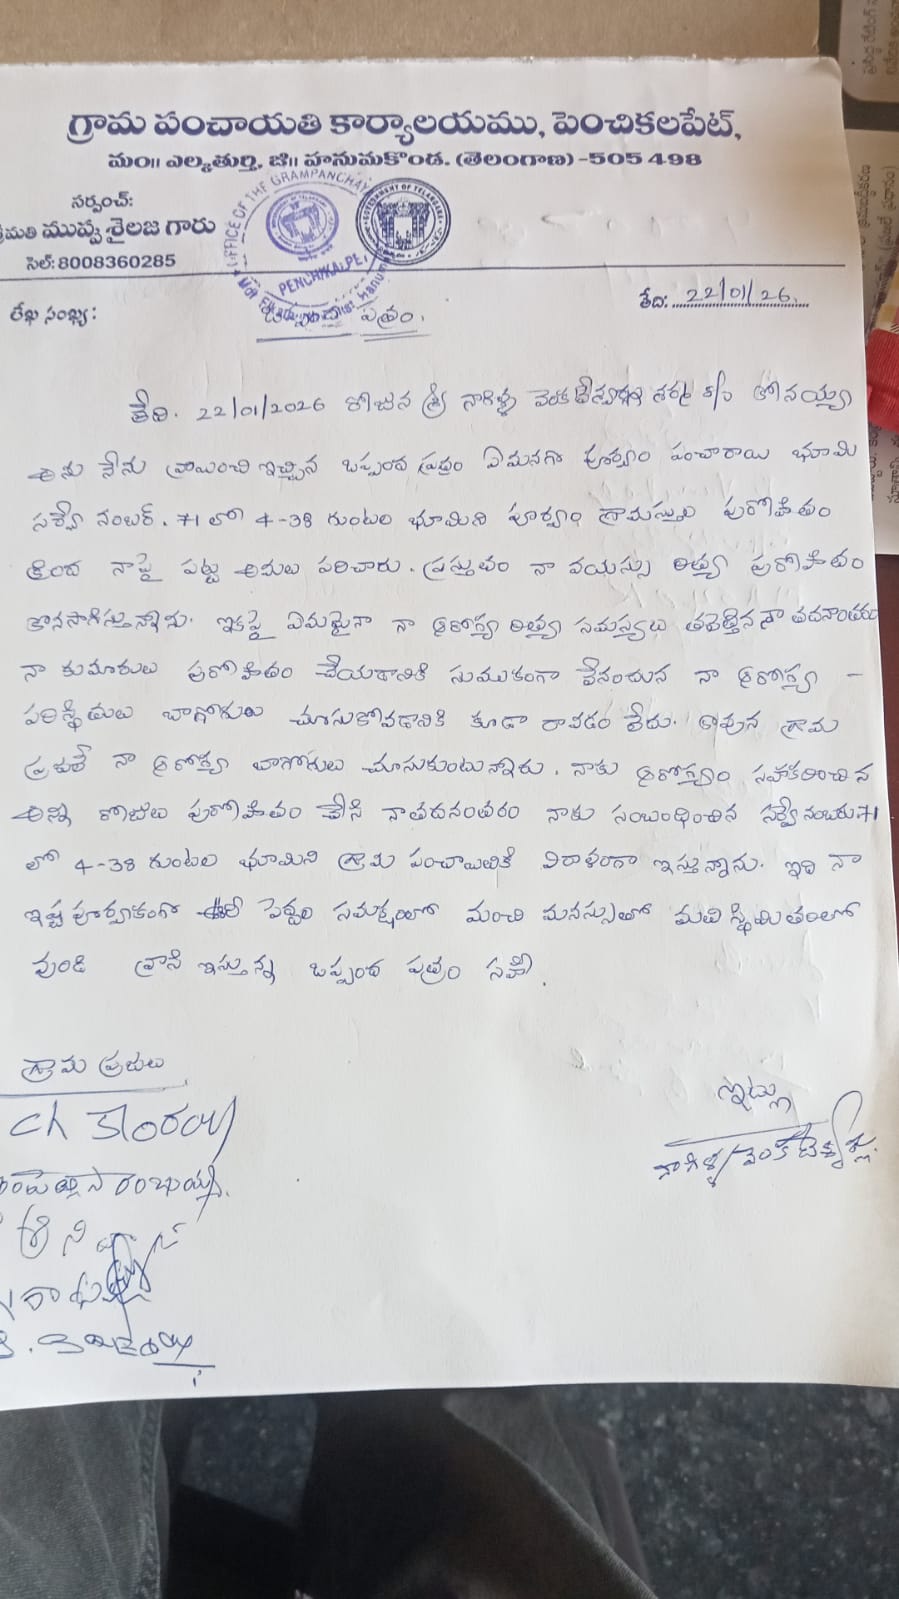 గ్రామ పంచాయతి కార్యాలయము, పెంచికలపేట్,
మం॥ ఎల్కతుర్తి, జి॥ హనుమకొండ. (తెలంగాణ) -505 498
సర్పంచ్:
మతి ముప్పు శైలజ గారు
సెల్: 8008360285
OFFICE OF THE GRAMPANCHAY
PENCHIKALPET
GOVERNMENT OF TELANGANA
లేఖ సంఖ్య:
తేది: 22/01/26.
ఒప్పంద పత్రం.
తేది. 22/01/2026 రోజున శ్రీ నాగిళ్ళ వెంకటేశ్వర్లు శర్మ s/o
అను నేను వ్రాయించి ఇచ్చిన ఒప్పంద పత్రం ఏమనగా పూర్వం పంచారాయి భూమి
సర్వే నంబర్. 71 లో 4-38 గుంటల భూమిని పూర్వం గ్రామస్తులు పురోహితం
క్రింద నాపై పట్టు అమలు పరిచారు. ప్రస్తుతం నా వయస్సు రిత్యా పురోహితం
కొనసాగిస్తున్నాను. ఇకపై ఏమైనా నా ఆరోగ్య రిత్యా సమస్యలు తలెత్తిన నా తదనాంతరం
నా కుమారులు పురోహితం చేయడానికి సుముకంగా లేనందున నా ఆరోగ్య -
పరిస్థితులు బాగోగులు చూసుకోవడానికి కూడా రావడం లేదు. కావున గ్రామ
ప్రజలే నా ఆరోగ్య బాగోగులు చూసుకుంటున్నారు. నాకు ఆరోగ్యం సహకరించిన
అన్ని రోజులు పురోహితం చేసి నాతదనంతరం నాకు సంబంధించిన సర్వే నంబరు.71
లో 4-38 గుంటల భూమిని గ్రామ పంచాయితికి విరాళంగా ఇస్తున్నాను. ఇది నా
ఇష్ట పూర్వకంగా ఊరి పెద్దల సమక్షంలో మంచి మనస్సుతో మతి స్థిమితంలో
వుండి వ్రాసి ఇస్తున్న ఒప్పంద పత్రం సహీ.
గ్రామ ప్రజలు
నాగిళ్ళ వెంకటేశ్వర్లు.